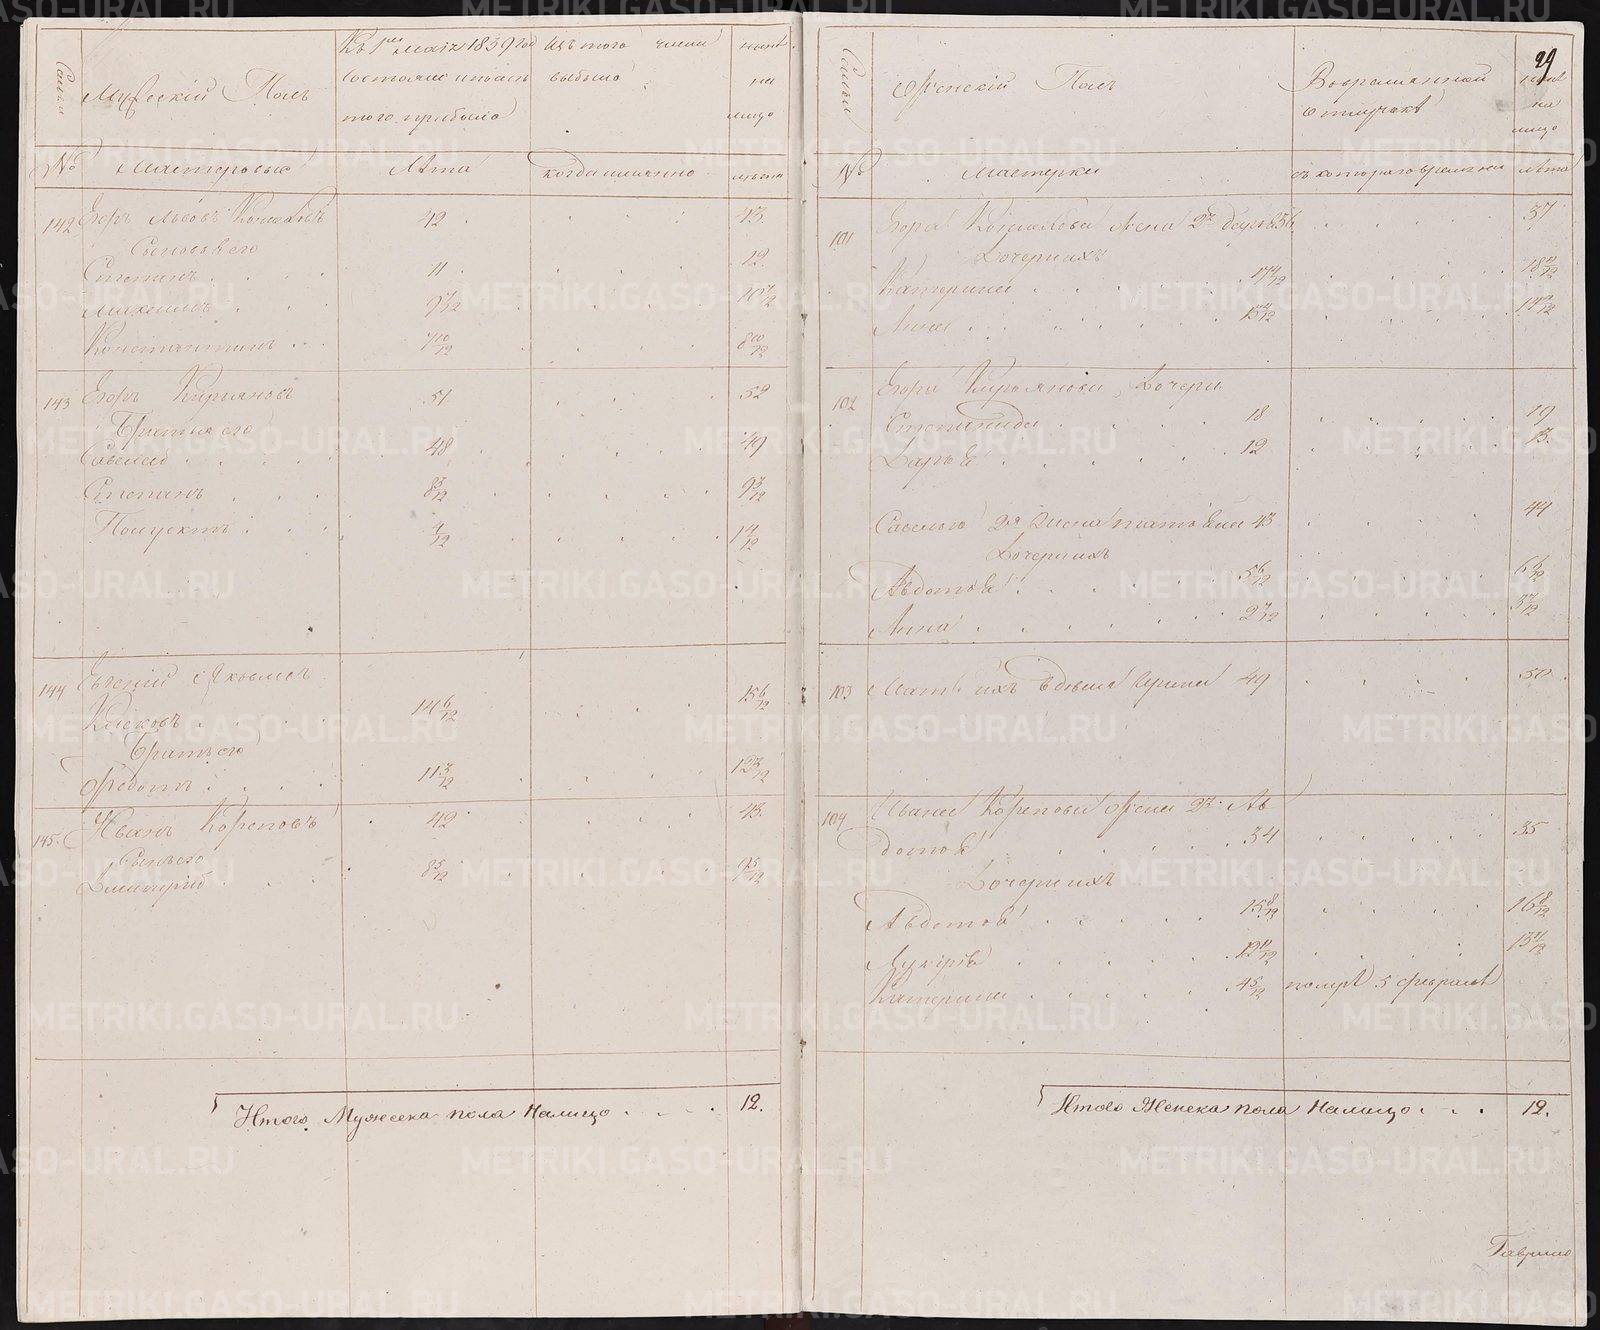 Мужескій Полъ
Къ 1му маія 1839 год
состояло и после
того прибыло
Изъ того числа
выбыло
ныне
на
лицо
№
Мастеровые
Лѣта
когда имянно
лѣта
142 Егоръ Львовъ 42 43
Сыновья его
Степанъ 11 12
Михаилъ 9 7/12 10 7/12
Константинъ 7 10/12 8 10/12
143 Егоръ Кирьяновъ 51 52
Братья его
Савелей 48 49
Степанъ 8 3/12 9 3/12
4/12 1 4/12
144 Евгений Яковлевъ
14 6/12 15 6/12
Братъ его
Федотъ 11 3/12 12 3/12
145 Иванъ Кореповъ 42 43
Сынъ его
Дмитрий 8 5/12 9 5/12
Итого Мужеска пола Налицо 12.
29
Женскій Полъ
Во временной
отлучкѣ
на
лицо
№
Мастерки
съ котораго времени
Лѣта
101 Егора жена 2я 36 37
Дочери ихъ
Катерина 18 11/12
Анна
102 Егора Кирьянова Дочери
Степанида 18 19
Дарья 12 13
Савелья 2я жена 43 44
Дочери ихъ
Авдотья 5 6/12 6 6/12
Анна 2 7/12 3 7/12
103 Мать ихъ вдова Ирина 49 50
104 Ивана Корепова жена 2я Ав
дотья 34 35
Дочери ихъ
Авдотья 15 8/12 16 8/12
Лукерья 12 11/12 13 11/12
Катерина 4 5/12 померла 5 февраля
Итого Женска пола Налицо 12.
Гаврило
METRIKI.GASO-URAL.RU